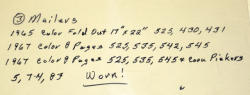 ③ Mailers
1965 Color Fold Out 17" x 22" 523, 430, 431
1967 Color 8 Pages 523, 535, 542, 545
1967 Color 8 Pages 525, 535, 545 & Corn Pickers
5, 74, 83 Worn!